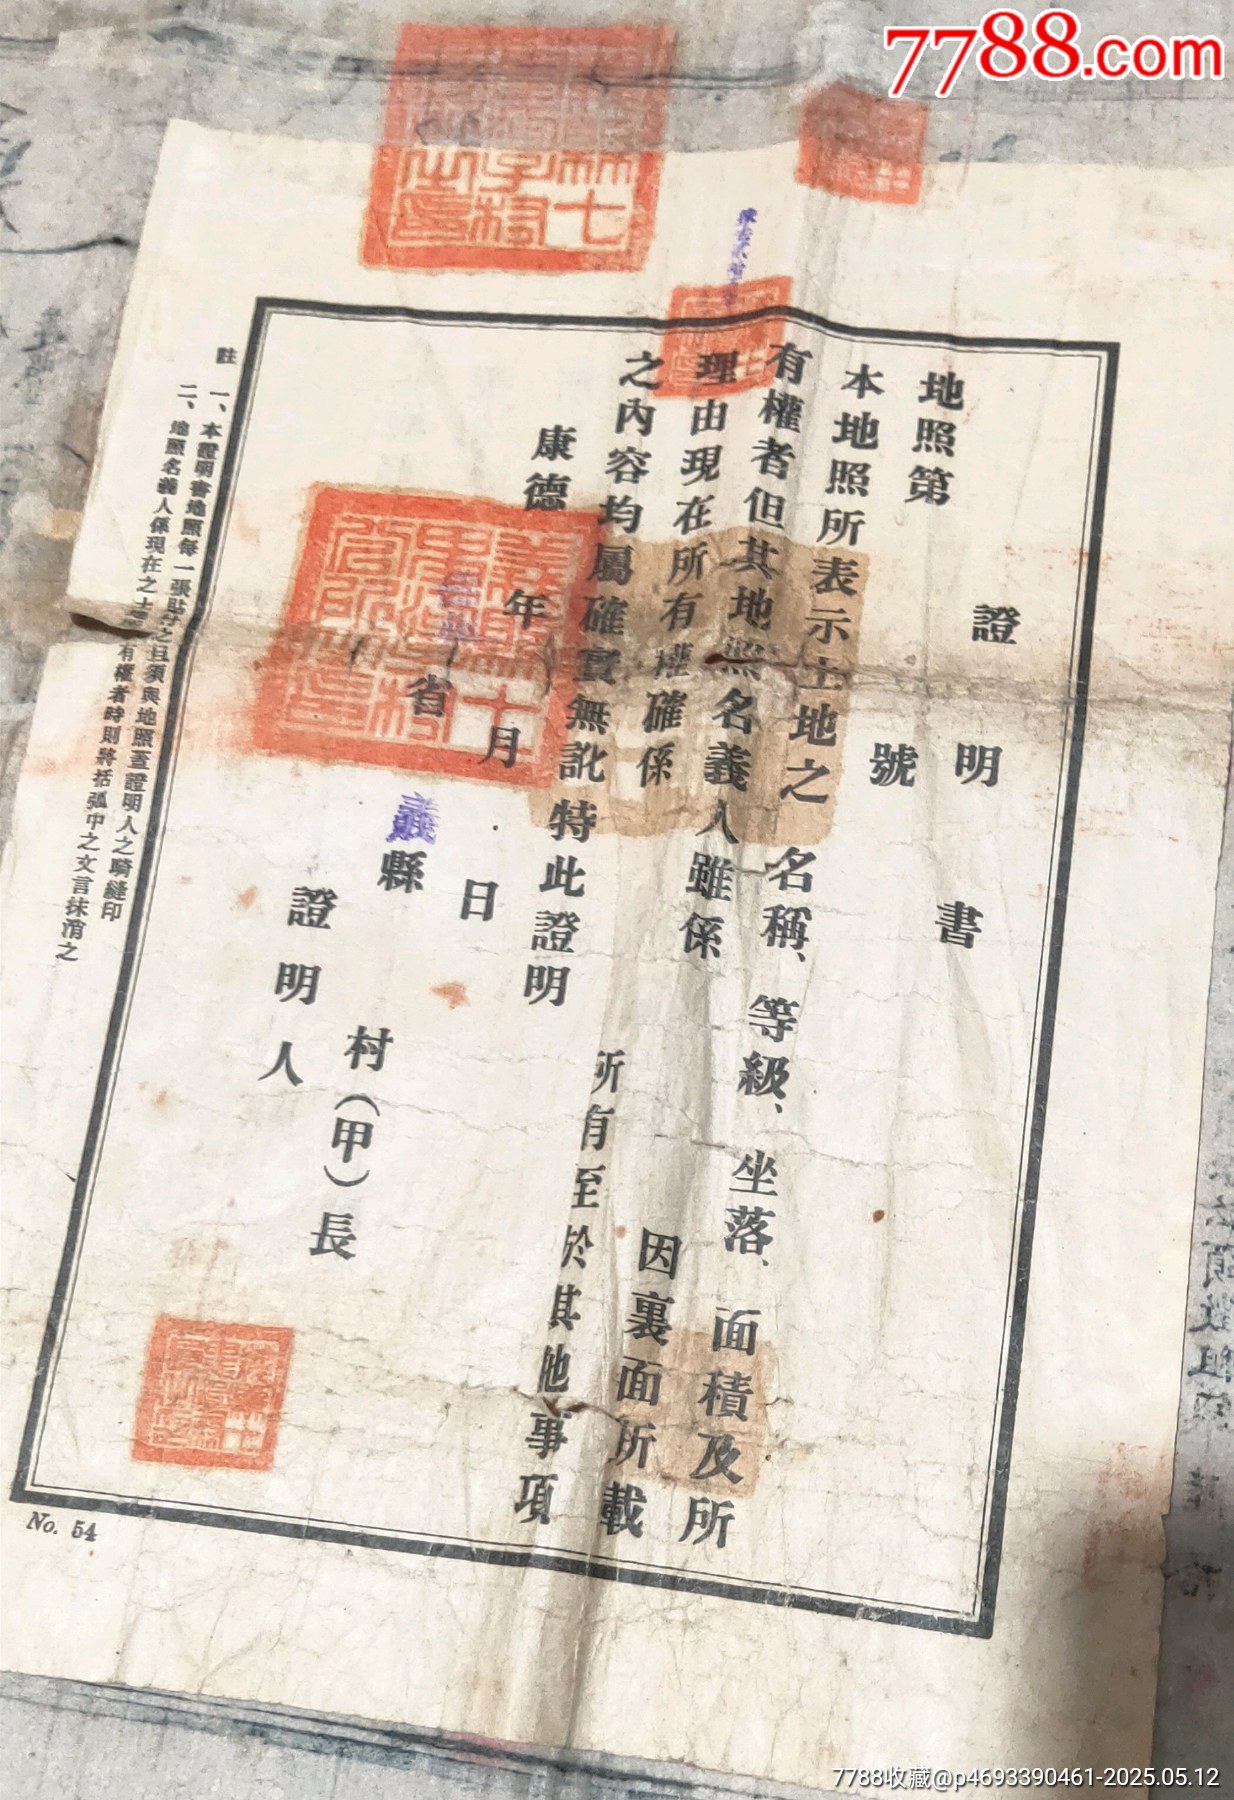 7788.com
證明書
地照第 號
本地照所表示土地之名稱、等級、坐落、面積及所
有權者但其地照名義人雖係 因裏面所載
理由現在所有權確係 所有至於其他事項
之內容均屬確實無訛特此證明
康德 年 月 日
省 義縣 村(甲)長
證明人
註 一、本證明書地照每一張貼付之且須與地照蓋證明人之騎縫印
二、地照名義人係現在之土地所有權者時則將括弧中之文言抹消之
No. 54
7788收藏@p4693390461-2025.05.12